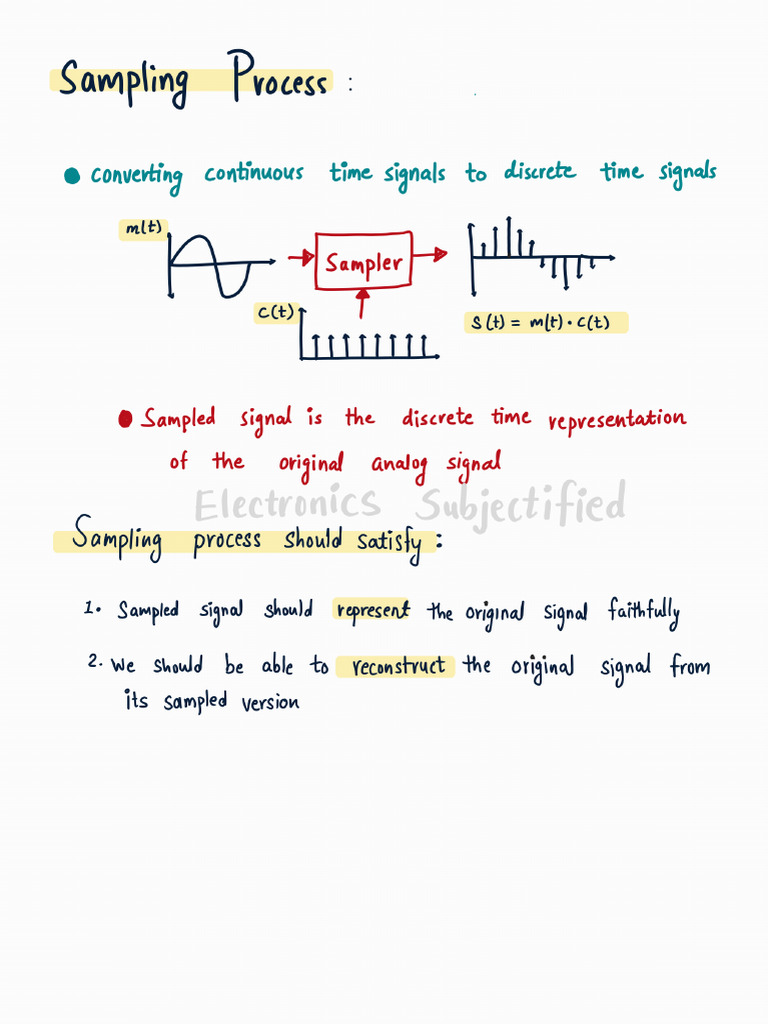 Sampling Process :
● Converting continuous time signals to discrete time signals
m(t)
Sampler
C(t)
S(t) = m(t) · C(t)
● Sampled signal is the discrete time representation
of the original analog signal
Electronics Subjectified
Sampling process should satisfy :
1. Sampled signal should represent the original signal faithfully
2. We should be able to reconstruct the original signal from
its sampled version